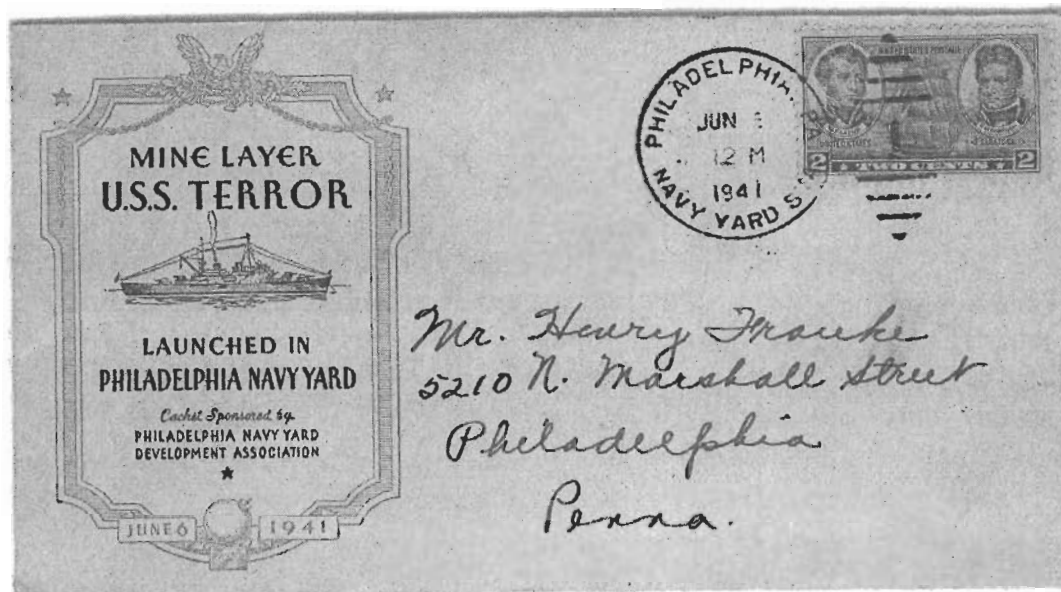 MINE LAYER
U.S.S. TERROR
LAUNCHED IN
PHILADELPHIA NAVY YARD
Cachet Sponsored by
PHILADELPHIA NAVY YARD
DEVELOPMENT ASSOCIATION
JUNE 6 1941
PHILADELPHIA, PA
JUN
12 M
1941
NAVY YARD
UNITED STATES POSTAGE
2 TWO CENTS 2
Mr. Henry Franke
5210 N. Marshall Street
Philadelphia
Penna.